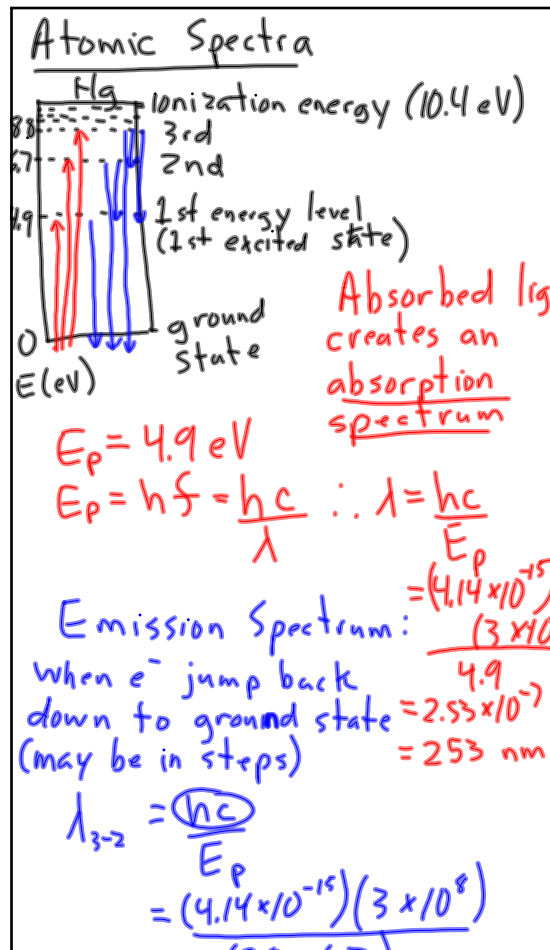 Atomic Spectra
Hg
ionization energy (10.4 eV)
8.8
3rd
6.7
2nd
4.9
1st energy level
(1st excited state)
0
ground
state
E(eV)
Absorbed
creates an
absorption
spectrum
Ep = 4.9 eV
Ep = hf = hc/λ ∴ λ = hc/Ep
= (4.14×10⁻¹⁵)
(3×10
4.9
= 2.53×10⁻⁷
= 253 nm
Emission Spectrum:
when e⁻ jump back
down to ground state
(may be in steps)
λ₃₋₂ = hc/Ep
= (4.14×10⁻¹⁵)(3×10⁸)